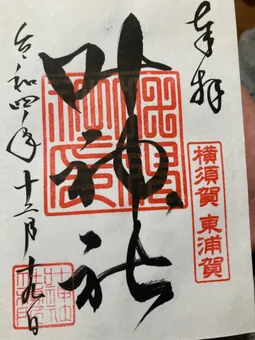 奉拝
横須賀 東浦賀
叶神社
令和四年十二月十九日